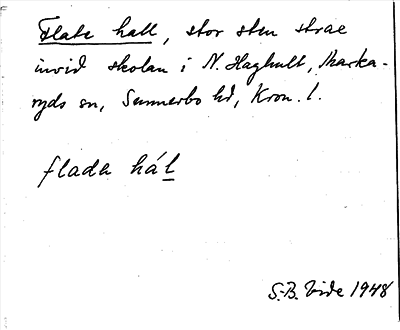 Flate hall, stor sten strax
invid skolan i N. Haghult, Marka-
ryds sn, Sunnerbo hd, Kron. l.
flada hál
S.-B. Vide 1948